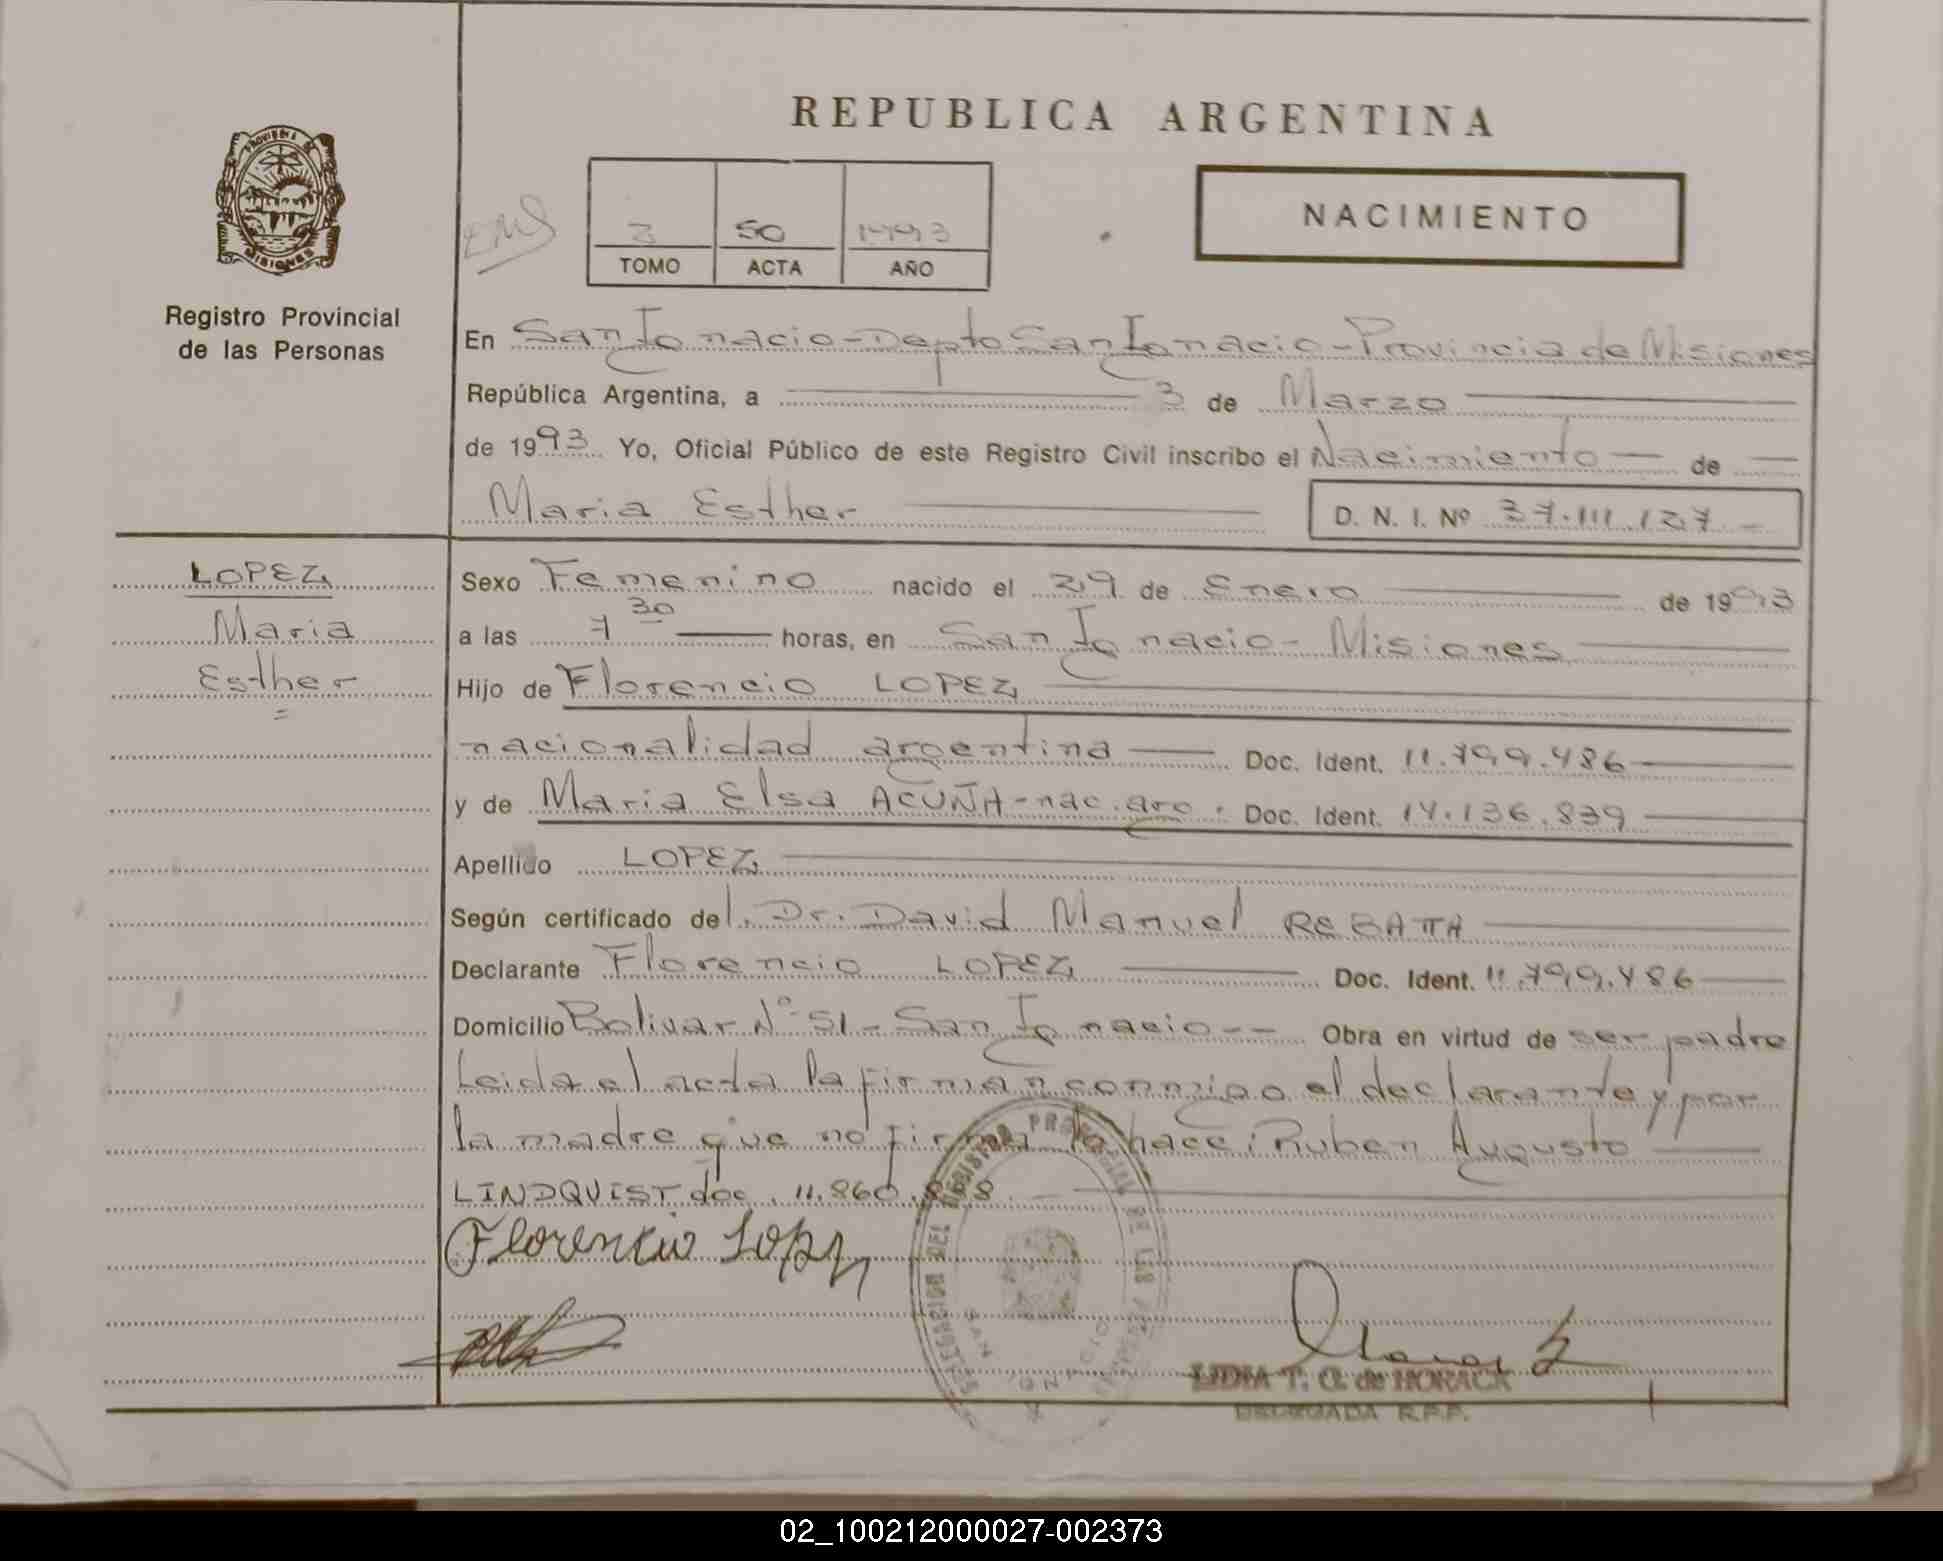 REPUBLICA ARGENTINA
PROVINCIA DE
MISIONES
Registro Provincial
de las Personas
50 1993
TOMO ACTA AÑO
NACIMIENTO
En San Ignacio - Depto San Ignacio - Provincia de Misiones
República Argentina, a 3 de Marzo
de 1993 Yo, Oficial Público de este Registro Civil inscribo el Nacimiento de
Maria Esther
D. N. I. Nº 37.111.127
LOPEZ
Maria
Esther
Sexo Femenino nacido el 29 de Enero de 1993
a las 7 30 horas, en San Ignacio - Misiones
Hijo de Florencio LOPEZ
nacionalidad argentina Doc. Ident. 11.799.486
y de Maria Elsa ACUÑA - nac. arg. Doc. Ident. 14.136.839
Apellido LOPEZ
Según certificado del Dr. David Manuel REBATTA
Declarante Florencio LOPEZ Doc. Ident. 11.799.486
Domicilio Bolivar Nº 51 - San Ignacio -- Obra en virtud de ser padre
Leida el acta la firman conmigo el declarante y por
la madre que no firma lo hace: Ruben Augusto
LINDQUIST doc. 11.860.
Florencio Lopez
DELEGACION DEL REGISTRO PROVINCIAL DE LAS PERSONAS
SAN IGNACIO
LIDIA T. G. de HORACK
DELEGADA R.P.P.
02_100212000027-002373